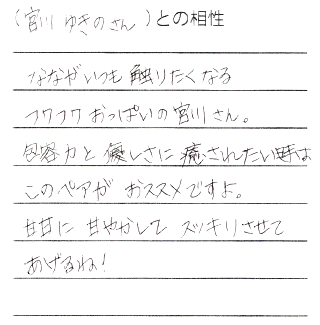 (宮川 ゆきの さん)との相性
なながいつも 触りたくなる
フワフワ おっぱいの 宮川 さん。
包容力と 優しさに 癒されたい時は
このペアが おススメですよ。
甘甘に 甘やかして スッキリさせて
あげるね!